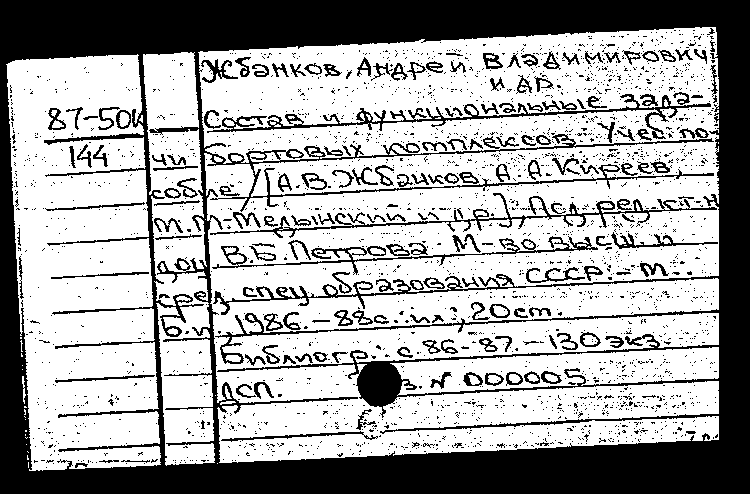 Жбанков, Андрей Владимирович
и др.
87-50к Состав и функциональные зада-
144 чи бортовых комплексов: Учеб. по-
собие / [А.В. Жбанков, А.А. Киреев,
М.М. Медынский и др.]; Под ред. к.т.н
доц. В.Б. Петрова; М-во высш. и
сред. спец. образования СССР. - М.:
Б.и., 1986. - 88с.: ил.; 20 см.
Библиогр.: с. 86-87. - 130 экз.
ДСП. з. № 000005